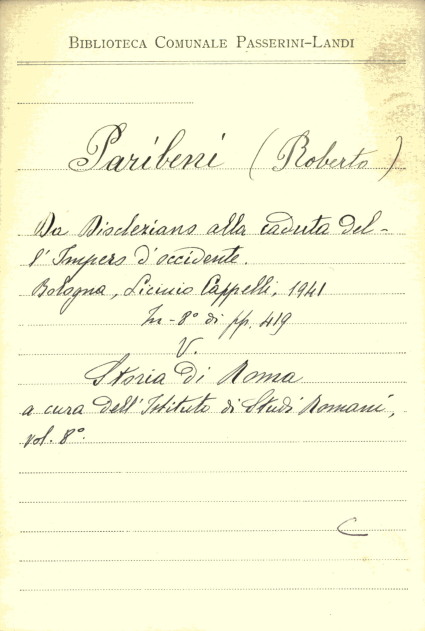 BIBLIOTECA COMUNALE PASSERINI-LANDI
Paribeni (Roberto)
Da Diocleziano alla caduta del-
l'Impero d'occidente.
Bologna, Licinio Cappelli, 1941
In-8° di pp. 419
V.
Storia di Roma
a cura dell'Istituto di Studi Romani,
vol. 8°.
C